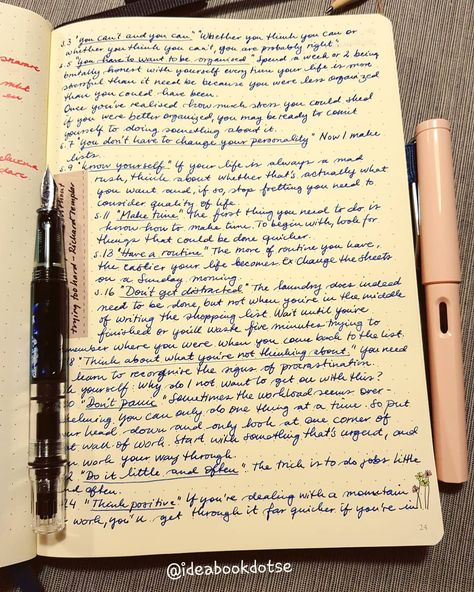 s.3 "you can't and you can" "Whether you think you can or
whether you think you can't, you are probably right"
s.5 "You have to want to be organised" Spend a week or 2 being
brutally honest with yourself every time your life is more
stressful than it need be because you were less organized
than you could have been.
Once you've realised how much stress you could shed
if you were better organized, you may be ready to commit
yourself to doing something about it.
s.7 "You don't have to change your personality" Now I make
lists.
s.9 "Know yourself." If your life is always a mad
rush, think about whether that's actually what
you want and, if so, stop fretting you need to
consider quality of life.
s.11 "Make time" The first thing you need to do is
know how to make time. To begin with, look for
things that could be done quicker.
s.13 "Have a routine" The more of routine you have,
the easier your life becomes. Ex Change the sheets
on a Sunday morning.
s.16 "Don't get distracted" The laundry does indeed
need to be done, but not when you're in the middle
of writing the shopping list. Wait until you've
finished or you'll waste five minutes trying to
remember where you were when you come back to the list.
18 "Think about what you're not thinking about." You need
learn to recognise the signs of procrastination.
yourself: Why do I not want to get on with this?
"Don't panic" Sometimes the workload seems over-
whelming. You can only do one thing at a time. So put
your head down and only look at one corner of
wall of work. Start with something that's urgent, and
work your way through.
"Do it little and often". The trick is to do jobs little
and often.
24 "Think positive" If you're dealing with a mountain
work, you'll get through it far quicker if you're in
trying too hard - Richard Templar
24
@ideabookdotse